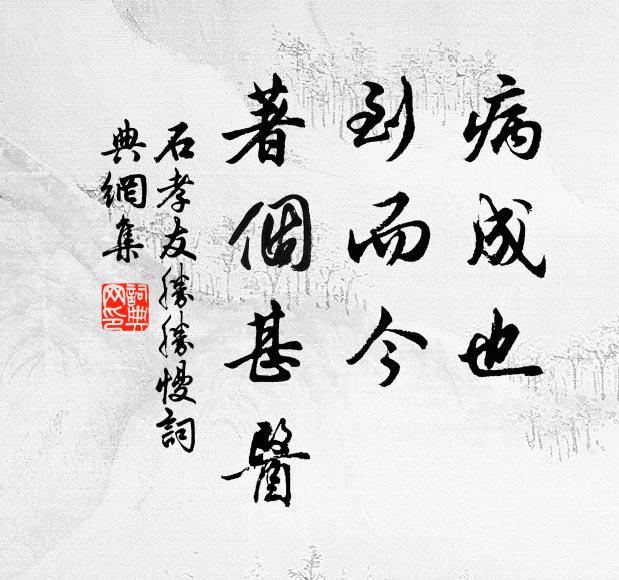 病成也
到而今
著個甚醫
石孝友勝勝慢詞
典網集
詞典
网印